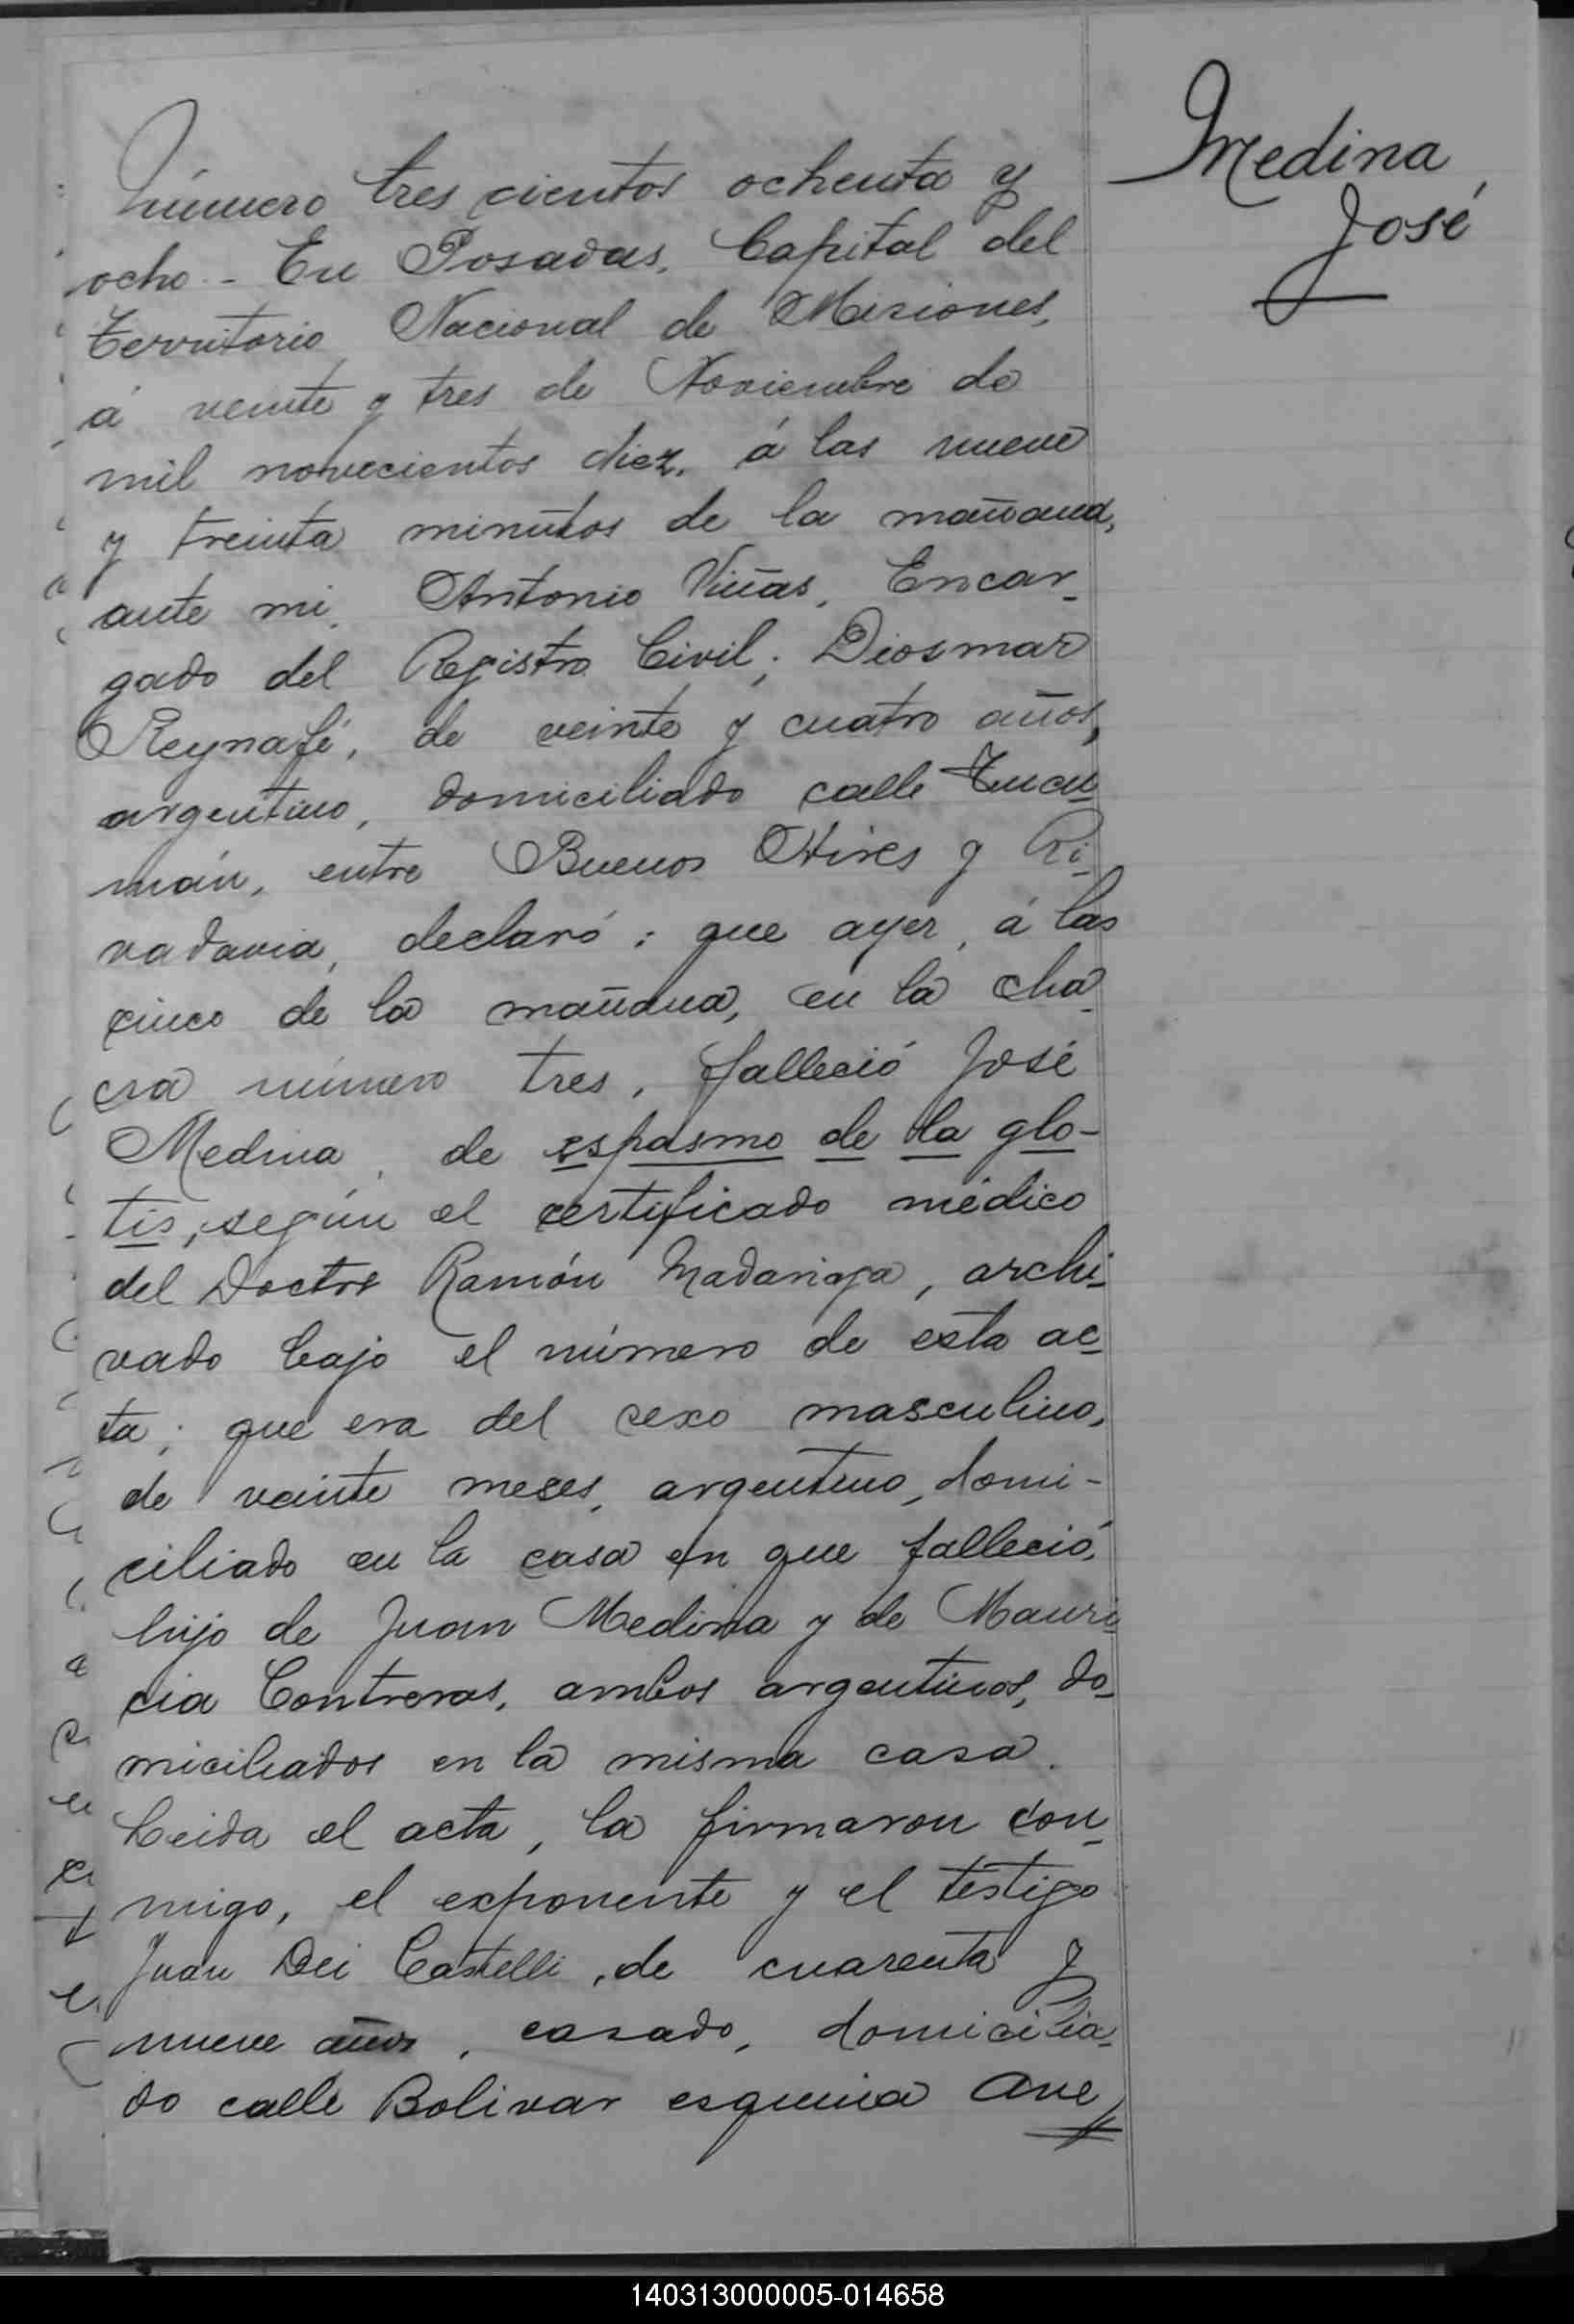 Medina,
José
Número tres cientos ochenta y
ocho - En Posadas, Capital del
Territorio Nacional de Misiones,
á veinte y tres de Noviembre de
mil novecientos diez, á las nueve
y treinta minutos de la mañana,
ante mi, Antonio Viñas, Encar-
gado del Registro Civil; Diosmar
Reynafé, de veinte y cuatro años,
argentino, domiciliado calle Tucu-
mán, entre Buenos Aires y Ri-
vadavia, declaró: que ayer, á las
cinco de la mañana, en la cha-
cra número tres, falleció José
Medina, de espasmo de la glo-
tis, según el certificado médico
del Doctor Ramón Madariaga, archi-
vado bajo el número de esta ac-
ta; que era del sexo masculino,
de veinte meses, argentino, domi-
ciliado en la casa en que falleció,
hijo de Juan Medina y de Mauri-
cia Contreras, ambos argentinos, do-
miciliados en la misma casa.
Leida el acta, la firmaron con-
migo, el exponente y el testigo
Juan Dei Castelli, de cuarenta y
nueve años, casado, domicilia-
do calle Bolivar esquina Ave
140313000005-014658